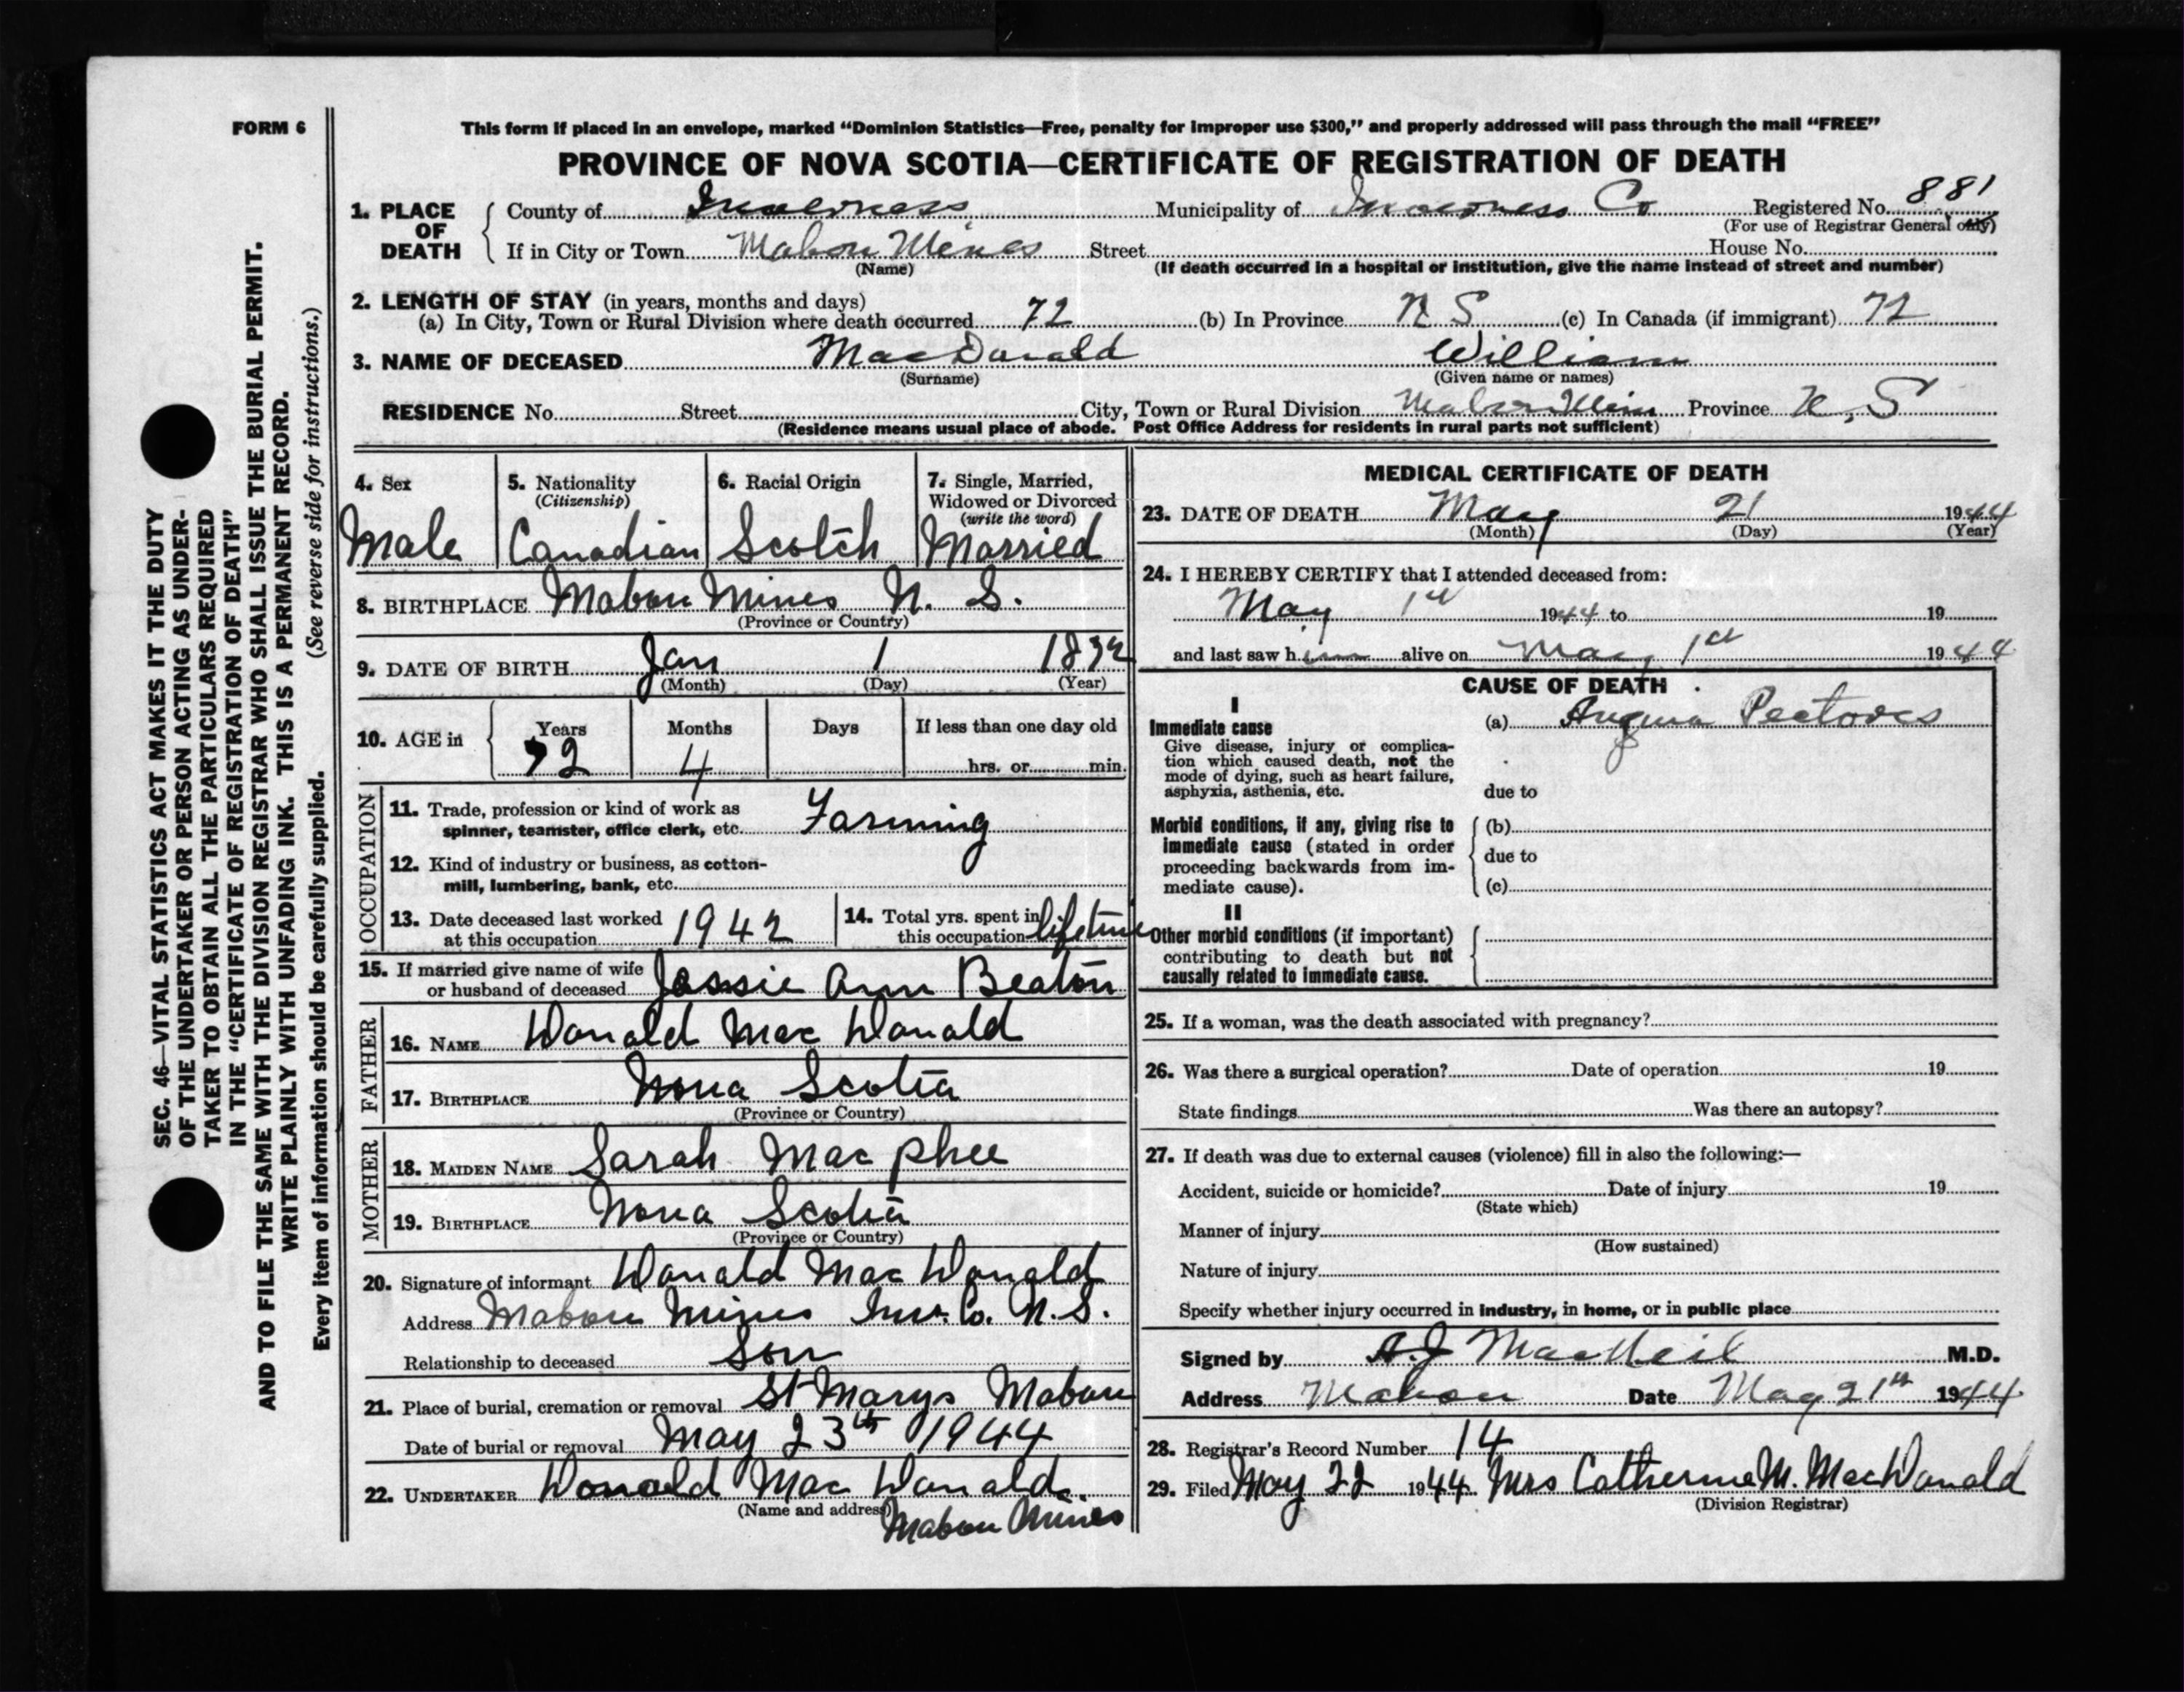 FORM 6
This form if placed in an envelope, marked “Dominion Statistics—Free, penalty for improper use $300,” and properly addressed will pass through the mail “FREE”
PROVINCE OF NOVA SCOTIA—CERTIFICATE OF REGISTRATION OF DEATH
1. PLACE OF DEATH
County of Inverness Municipality of Inverness Co Registered No. 881
(For use of Registrar General only)
If in City or Town Mabou Mines Street House No.
(Name) (If death occurred in a hospital or institution, give the name instead of street and number)
2. LENGTH OF STAY (in years, months and days)
(a) In City, Town or Rural Division where death occurred 72 (b) In Province N S (c) In Canada (if immigrant) 72
3. NAME OF DECEASED MacDonald William
(Surname) (Given name or names)
RESIDENCE No. Street City, Town or Rural Division Mabou Mines Province N, S
(Residence means usual place of abode. Post Office Address for residents in rural parts not sufficient)
4. Sex
Male
5. Nationality
(Citizenship)
Canadian
6. Racial Origin
Scotch
7. Single, Married,
Widowed or Divorced
(write the word)
Married
8. BIRTHPLACE Mabou Mines N. S.
(Province or Country)
9. DATE OF BIRTH Jan 1
(Month) (Day) (Year)
10. AGE in
Years Months Days If less than one day old
72 4 hrs. or min.
OCCUPATION
11. Trade, profession or kind of work as
spinner, teamster, office clerk, etc. Farming
12. Kind of industry or business, as cotton-
mill, lumbering, bank, etc.
13. Date deceased last worked
at this occupation 1942
14. Total yrs. spent in
this occupation lifetime
15. If married give name of wife
or husband of deceased Jessie Ann Beaton
FATHER
16. NAME Donald Mac Donald
17. BIRTHPLACE Nova Scotia
(Province or Country)
MOTHER
18. MAIDEN NAME Sarah Mac phee
19. BIRTHPLACE Nova Scotia
(Province or Country)
20. Signature of informant Donald Mac Donald
Address Mabou Mines Inv. Co. N. S.
Relationship to deceased Son
21. Place of burial, cremation or removal St Marys Mabou
Date of burial or removal May 23th 1944
22. UNDERTAKER Donald Mac Donald.
(Name and address) Mabou Mines
MEDICAL CERTIFICATE OF DEATH
23. DATE OF DEATH May 21 1944
(Month) (Day) (Year)
24. I HEREBY CERTIFY that I attended deceased from:
May 1st 1944 to 19
and last saw him alive on May 1st 1944
CAUSE OF DEATH
I
Immediate cause
Give disease, injury or complica-
tion which caused death, not the
mode of dying, such as heart failure,
asphyxia, asthenia, etc.
(a) Angina Pectoris
due to
Morbid conditions, if any, giving rise to
immediate cause (stated in order
proceeding backwards from im-
mediate cause).
(b)
due to
(c)
II
Other morbid conditions (if important)
contributing to death but not
causally related to immediate cause.
25. If a woman, was the death associated with pregnancy?
26. Was there a surgical operation? Date of operation 19
State findings Was there an autopsy?
27. If death was due to external causes (violence) fill in also the following:—
Accident, suicide or homicide? Date of injury 19
(State which)
Manner of injury
(How sustained)
Nature of injury
Specify whether injury occurred in industry, in home, or in public place
Signed by A.J MacNeil M.D.
Address Mabou Date May 21th 1944
28. Registrar's Record Number 14
29. Filed May 22 1944 Mrs Catherine M. MacDonald
(Division Registrar)
SEC. 46—VITAL STATISTICS ACT MAKES IT THE DUTY
OF THE UNDERTAKER OR PERSON ACTING AS UNDER-
TAKER TO OBTAIN ALL THE PARTICULARS REQUIRED
IN THE “CERTIFICATE OF REGISTRATION OF DEATH”
AND TO FILE THE SAME WITH THE DIVISION REGISTRAR WHO SHALL ISSUE THE BURIAL PERMIT.
WRITE PLAINLY WITH UNFADING INK. THIS IS A PERMANENT RECORD.
Every item of information should be carefully supplied. (See reverse side for instructions.)